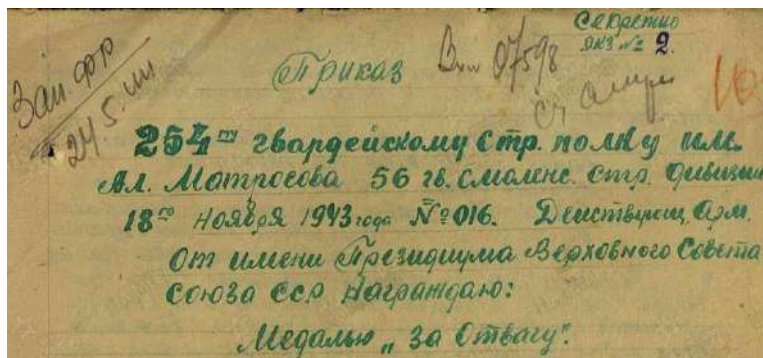 Секретно
экз № 2.
Приказ
Вхн 07598
254му гвардейскому стр. полку им.
Ал. Матросова 56 гв. Смоленс. стр. дивизии
18го ноября 1943 года №016. Действующ. Арм.
От имени Президиума Верховного Совета
Союза ССР Награждаю:
Медалью „За Отвагу".